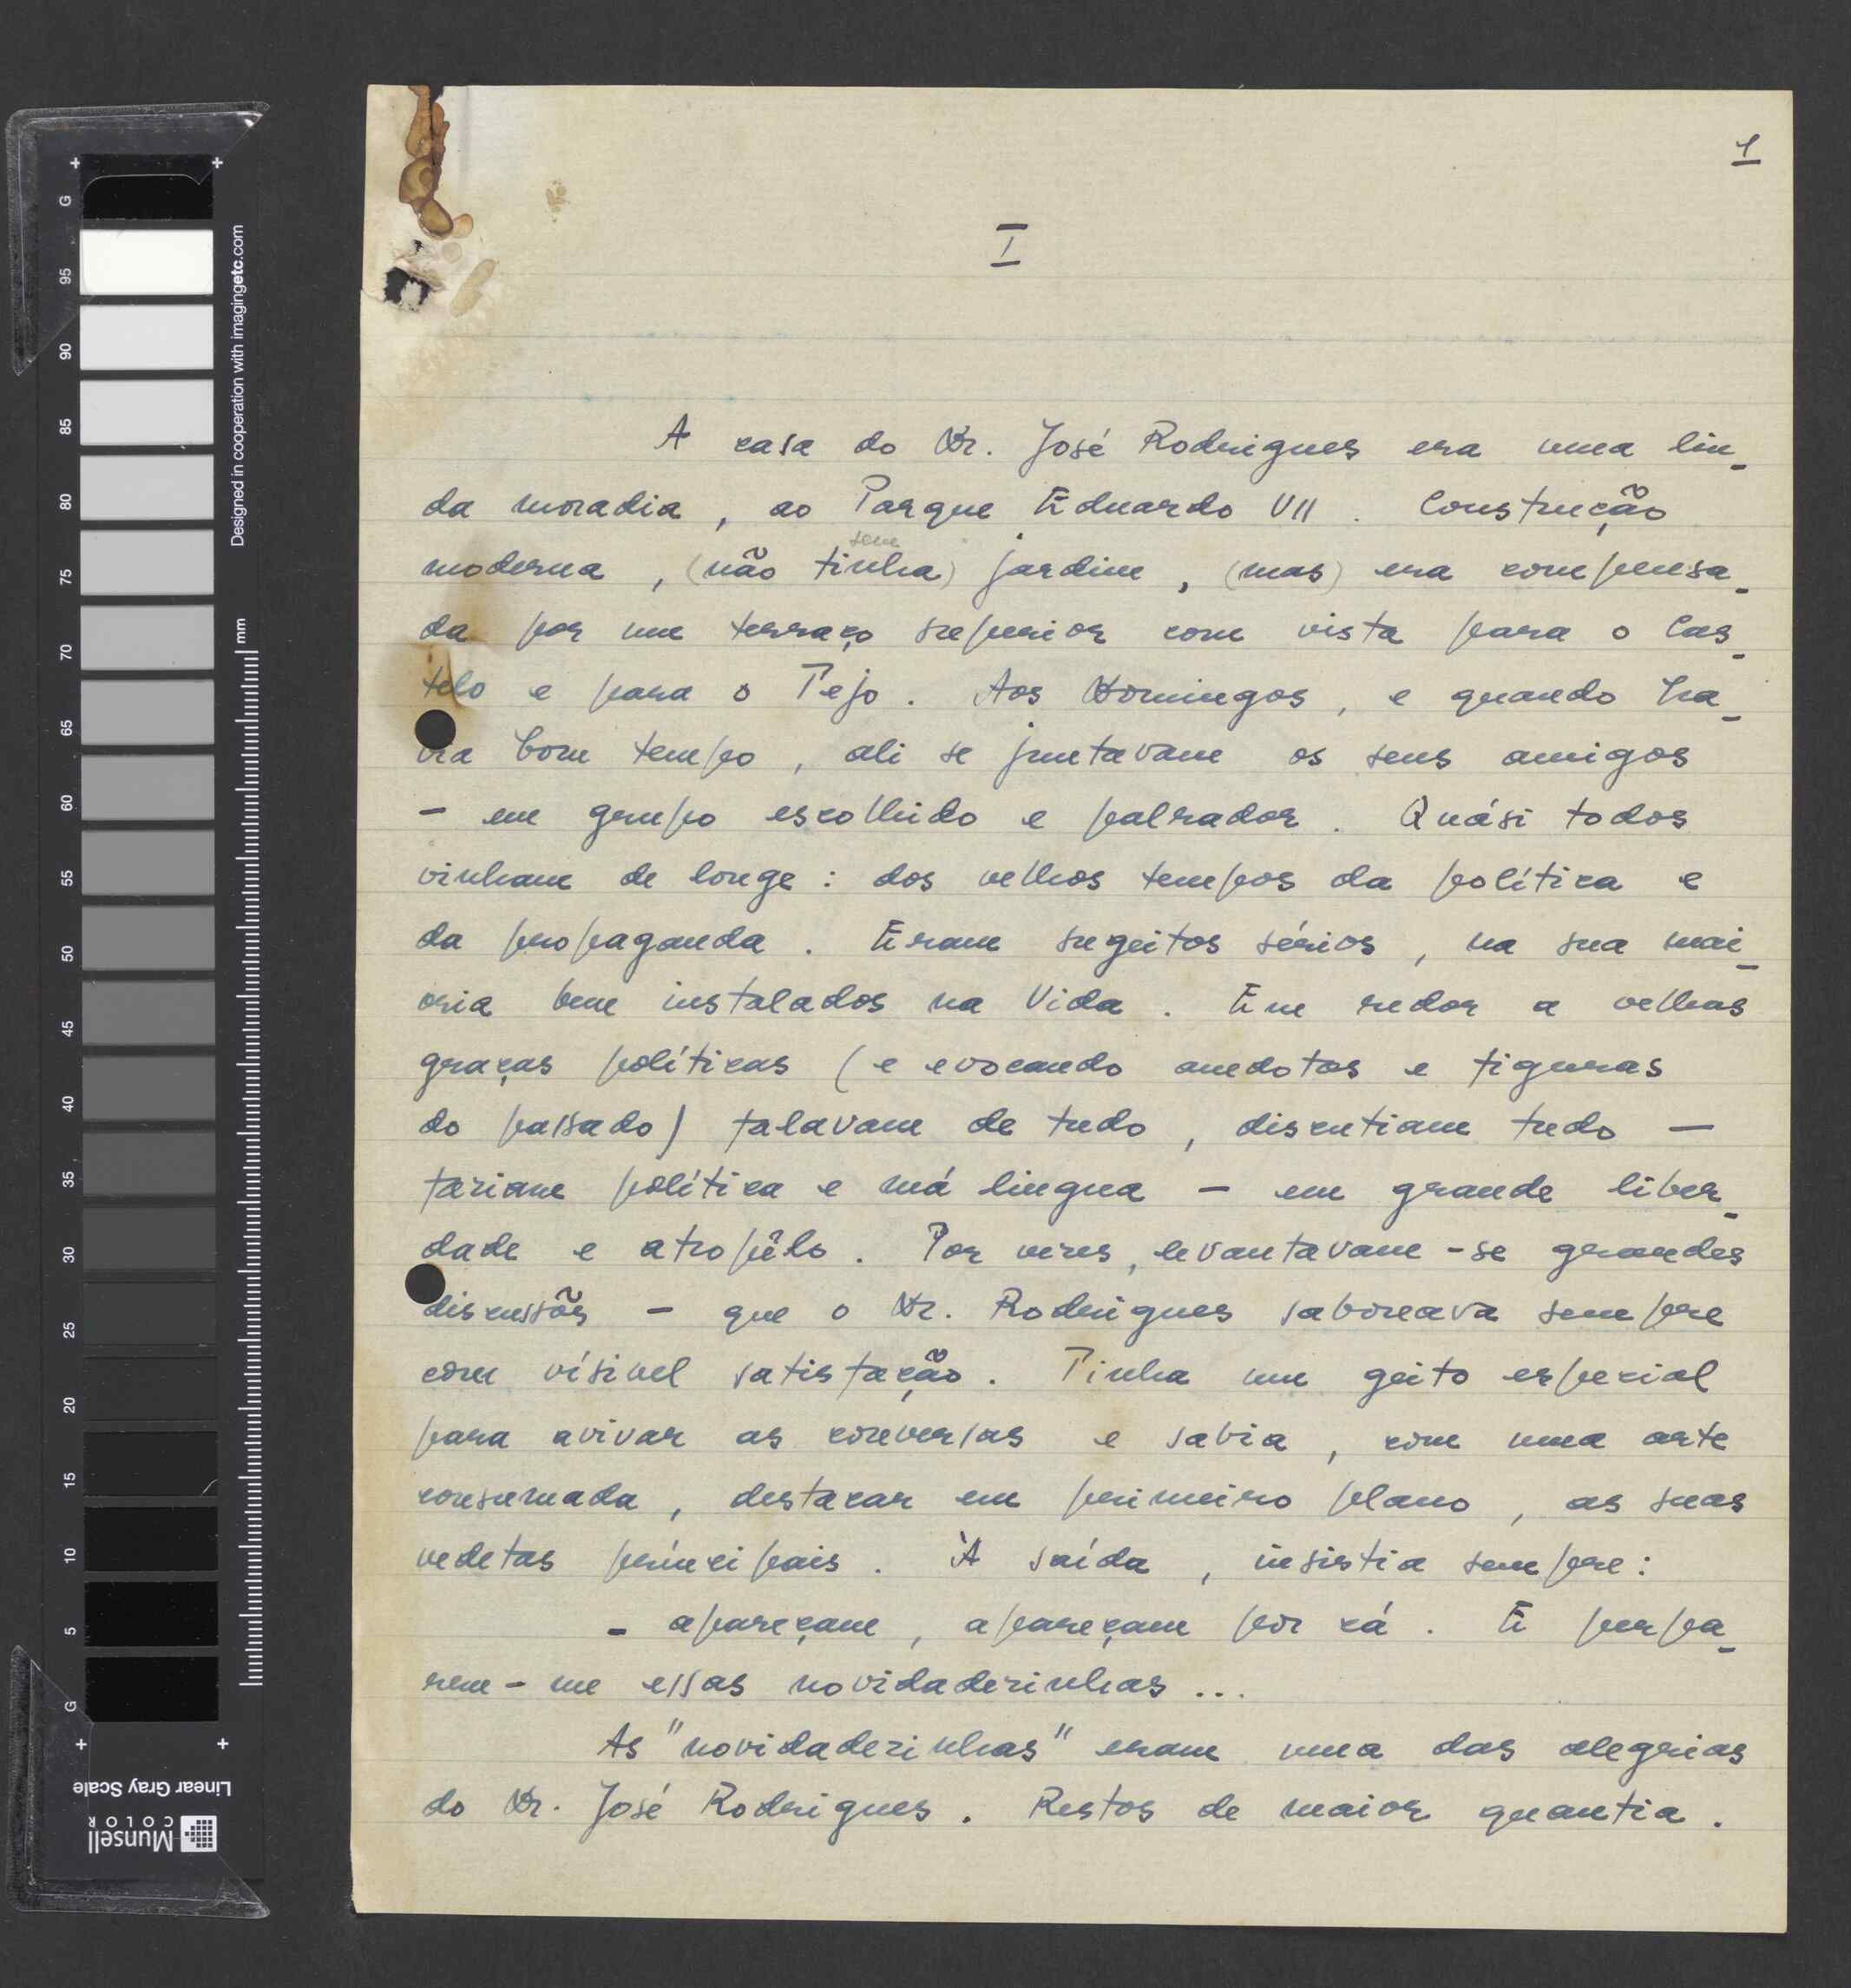 1
I
A casa do Dr. José Rodrigues era uma lin-
da moradia, ao Parque Eduardo VII. Construção
sem
moderna, (não tinha) jardim, (mas) era compensa-
da por um terraço superior com vista para o Cas-
telo e para o Tejo. Aos Domingos, e quando ha-
via bom tempo, ali se juntavam os seus amigos
- em grupo escolhido e palrador. Quási todos
vinham de longe: dos velhos tempos da política e
da propaganda. Eram sugeitos sérios, na sua mai-
oria bem instalados na Vida. Em redor a velhas
graças políticas (e evocando anedotas e figuras
do passado) falavam de tudo, discutiam tudo —
faziam política e má lingua - em grande liber-
dade e atropêlo. Por vezes, levantavam-se grandes
discussões - que o Dr. Rodrigues saboreava sempre
com vísivel satisfação. Tinha um geito especial
para avivar as conversas e sabia, com uma arte
consumada, destacar em primeiro plano, as suas
vedetas príncipais. À saída, insistia sempre:
- apareçam, apareçam por cá. E perpa-
rem-me essas novidadezinhas...
As "novidadezinhas" eram uma das alegrias
do Dr. José Rodrigues. Restos de maior quantia.
G
95
90
85
80
75
70
65
60
55
50
45
40
35
30
25
20
15
10
5
G
mm
Designed in cooperation with imagingetc.com
Linear Gray Scale
Munsell
COLOR